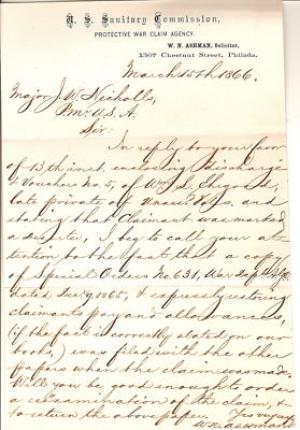 U. S. Sanitary Commission,
PROTECTIVE WAR CLAIM AGENCY.
W. N. ASHMAN, Solicitor,
1307 Chestnut Street, Philada.
March 15th 1866.
Major J. W. Nicholls,
P.M. U.S.A.
Sir:
In reply to your favor
of 13th inst. enclosing discharge
& Vouchers No. 5, of Wm. L.
late private of Unass'd Vols. and
stating that Claimant was marked
a deserter, I beg to call your at-
tention to the fact that a copy
of Special Orders No. 631, War Dept.
dated Dec. 1865, & expressly restoring
claimants pay and allowances,
(if the fact is correctly stated on our
books,) was filed with the other
papers when the claim was made.
Will you be good enough to order
a reexamination of the claim, &
to return the above paper. Yrs very
W. N. Ashman